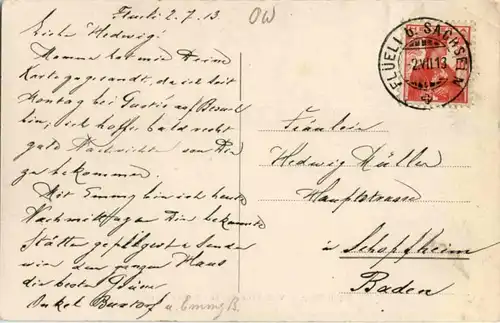 Flüeli 2.7.13
OW
Liebe Hedwig!
Mamma hat mir Deine
Karte gesandt, da ich seit
Montag bei auf Besuch
bin; ich hoffe bald recht
gute Nachrichten von Dir
zu bekommen.
Mit Emmy bin ich heute
Nachmittag an Dir bekannte
Stätten u. sende
von dem ganzen Haus
die besten Grüsse
Onkel u. Emmy B.
FLÜELI U. SACHSELN
-2.VII.13
Fräulein
Hedwig Müller
Hauptstrasse
in Schopfheim
Baden